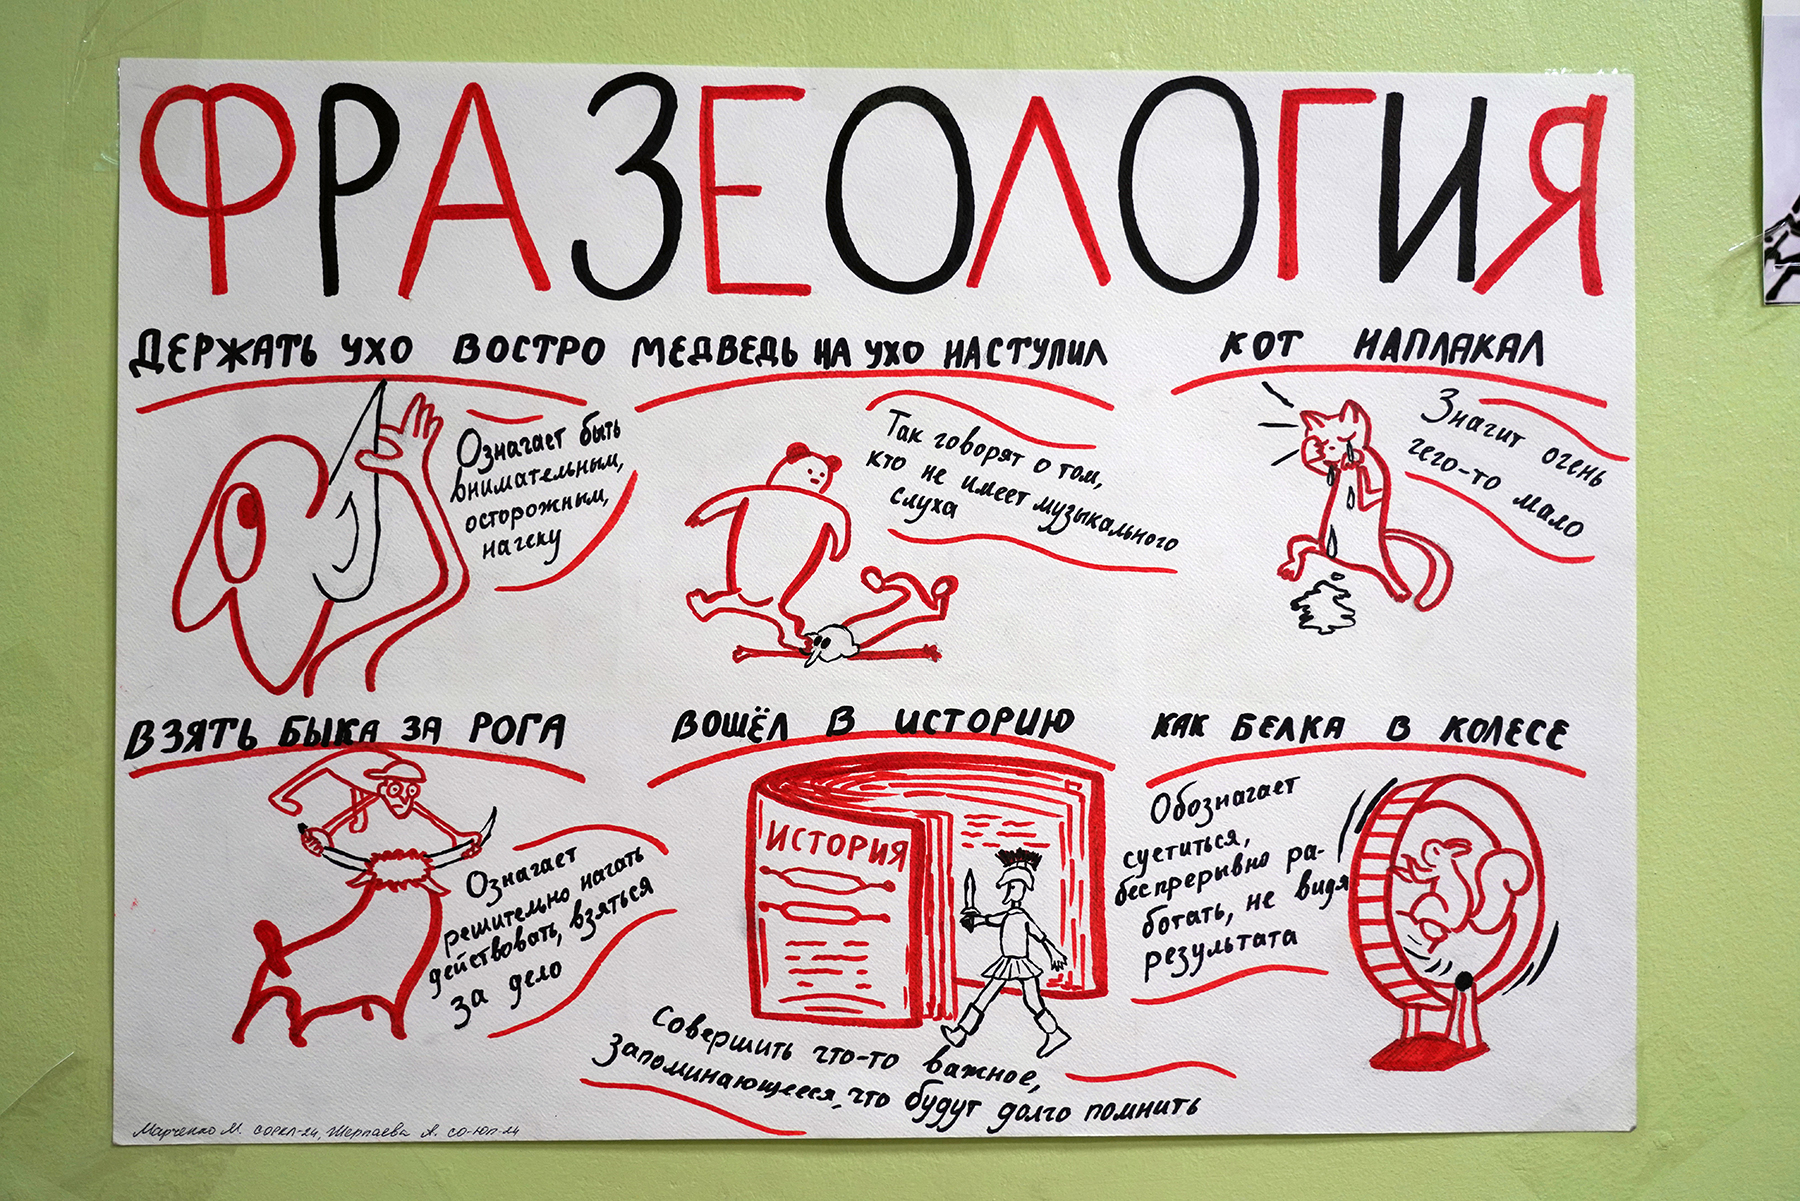 ФРАЗЕОЛОГИЯ
ДЕРЖАТЬ УХО ВОСТРО
Означает быть
внимательным,
осторожным,
начеку
МЕДВЕДЬ НА УХО НАСТУПИЛ
Так говорят о том,
кто не имеет музыкального
слуха
КОТ НАПЛАКАЛ
Значит очень
чего-то мало
ВЗЯТЬ БЫКА ЗА РОГА
Означает
решительно начать
действовать, взяться
за дело
ВОШЁЛ В ИСТОРИЮ
ИСТОРИЯ
Совершить что-то важное,
запоминающееся, что будут долго помнить
КАК БЕЛКА В КОЛЕСЕ
Обозначает
суетиться,
беспрерывно ра-
ботать, не видя
результата
Марченко М. СОРКЛ-24, Шерпаева А. СО-ЮП-24